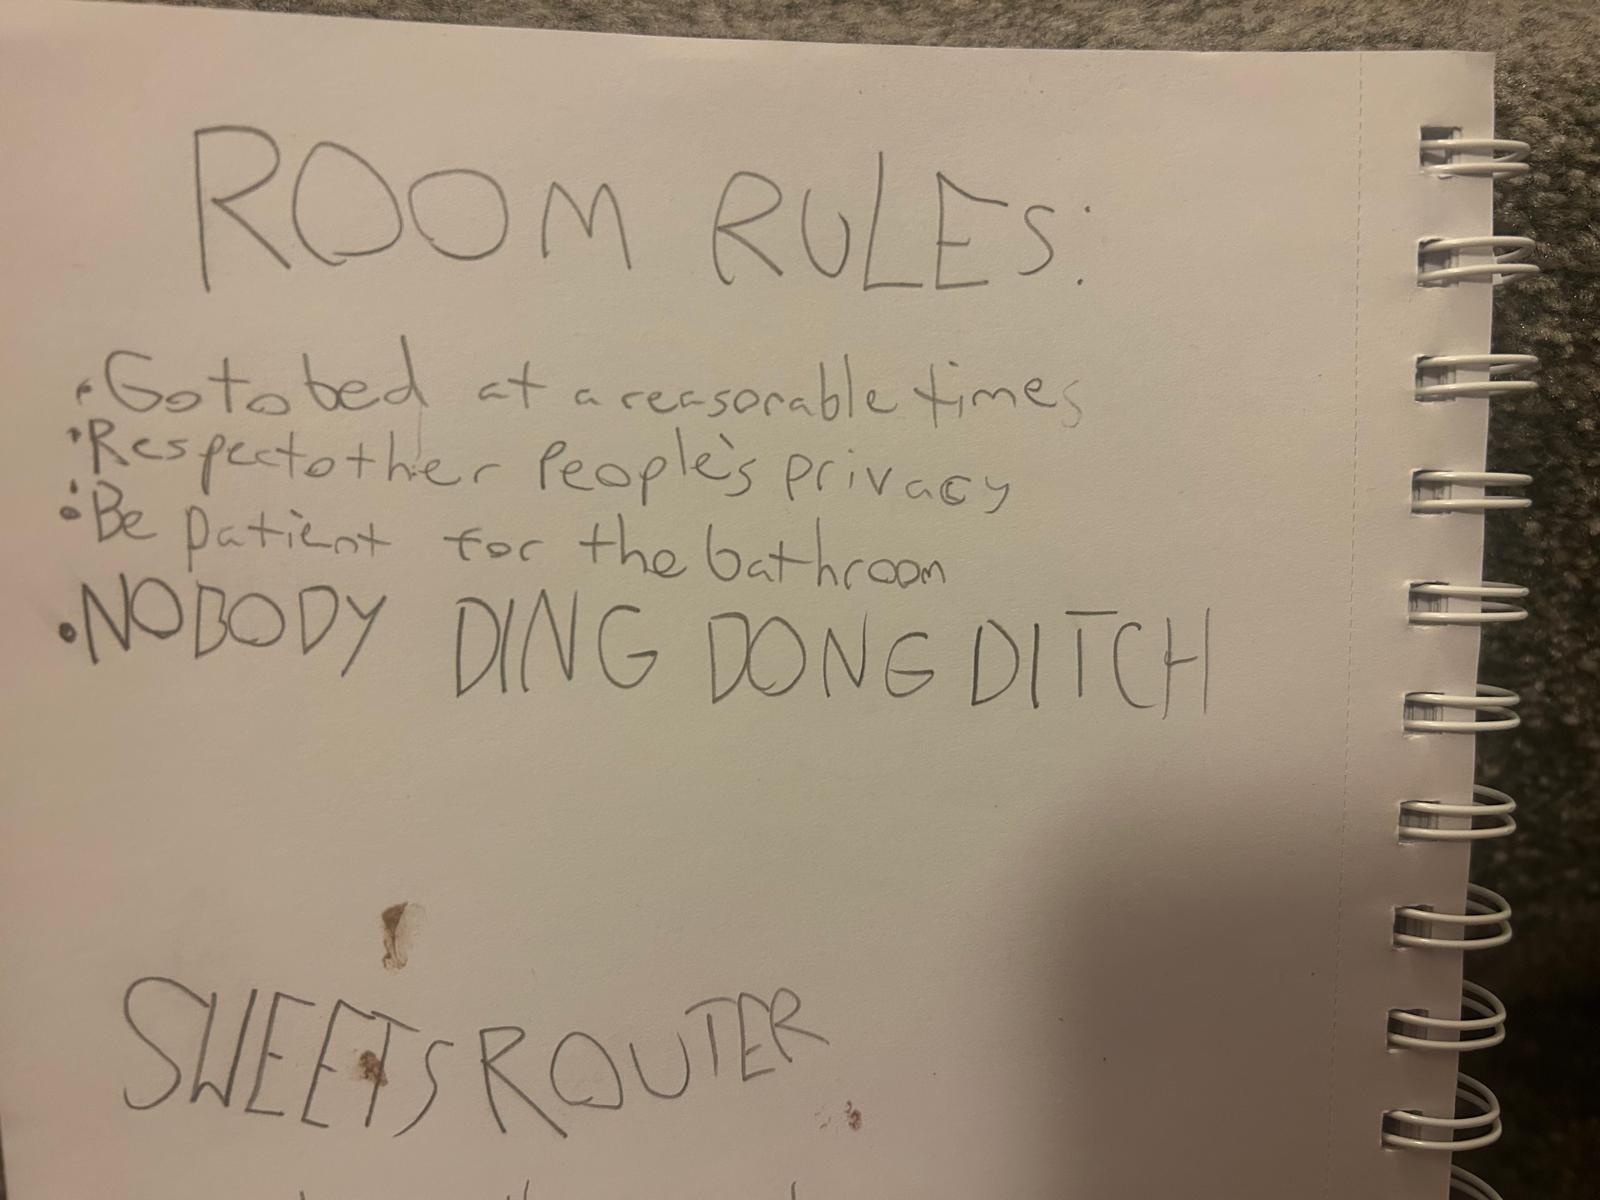 ROOM RULES:
• Go to bed at a reasonable times
• Respect other People's privacy
• Be patient for the bathroom
• NOBODY DING DONG DITCH
SWEETS ROUTER